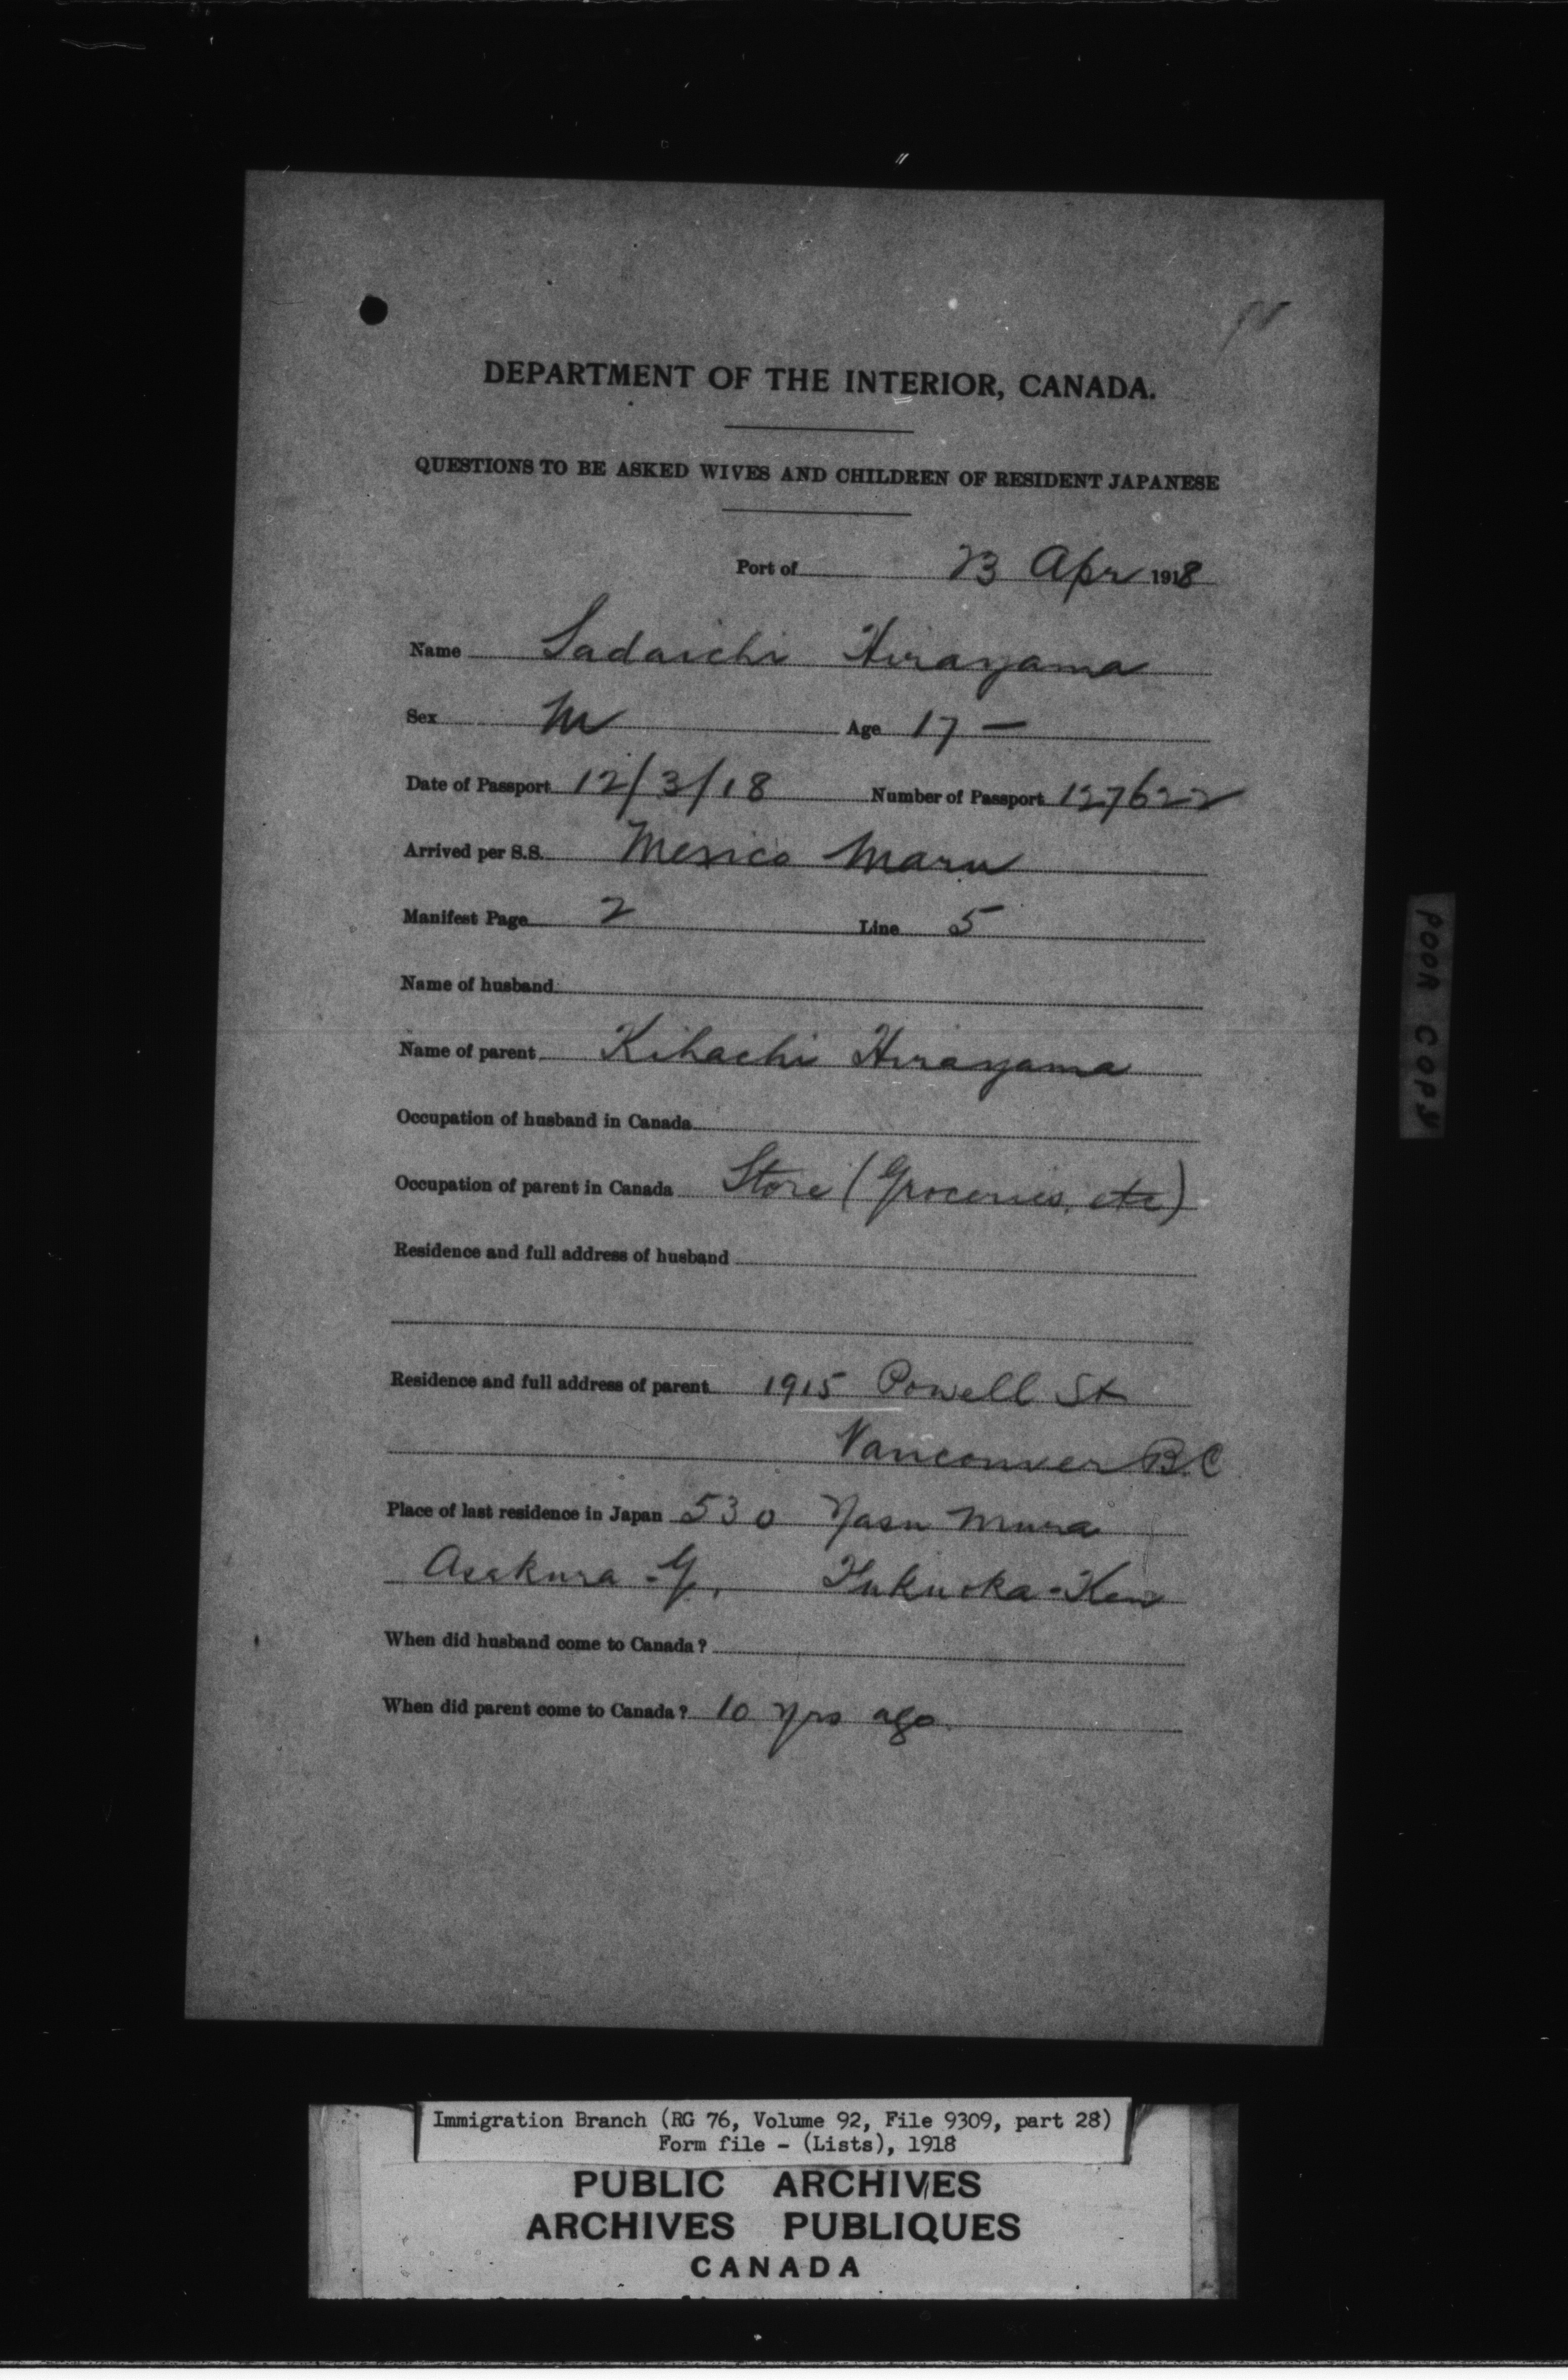 DEPARTMENT OF THE INTERIOR, CANADA.
QUESTIONS TO BE ASKED WIVES AND CHILDREN OF RESIDENT JAPANESE
Port of 23 Apr 1918
Name Sadaichi Hirayama
Sex M Age 17 —
Date of Passport 12/3/18 Number of Passport 127622
Arrived per S.S. Mexico Maru
Manifest Page 2 Line 5
Name of husband
Name of parent Kihachi Hirayama
Occupation of husband in Canada
Occupation of parent in Canada Store (Groceries, etc)
Residence and full address of husband
Residence and full address of parent 1915 Powell St
Vancouver BC
Place of last residence in Japan 530 Yasu Mura
Asakura-G, Fukuoka-Ken
When did husband come to Canada?
When did parent come to Canada? 10 yrs ago.
POOR COPY
Immigration Branch (RG 76, Volume 92, File 9309, part 28)
Form file - (Lists), 1918
PUBLIC ARCHIVES
ARCHIVES PUBLIQUES
CANADA